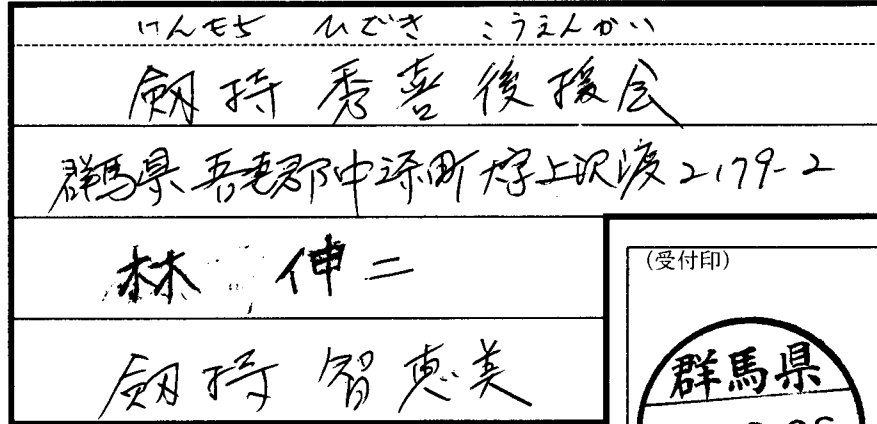 けんもち ひでき こうえんかい
劔持 秀喜後援会
群馬県吾妻郡中之条町大字上沢渡2179-2
林 伸二
劔持 智恵美
(受付印)
群馬県